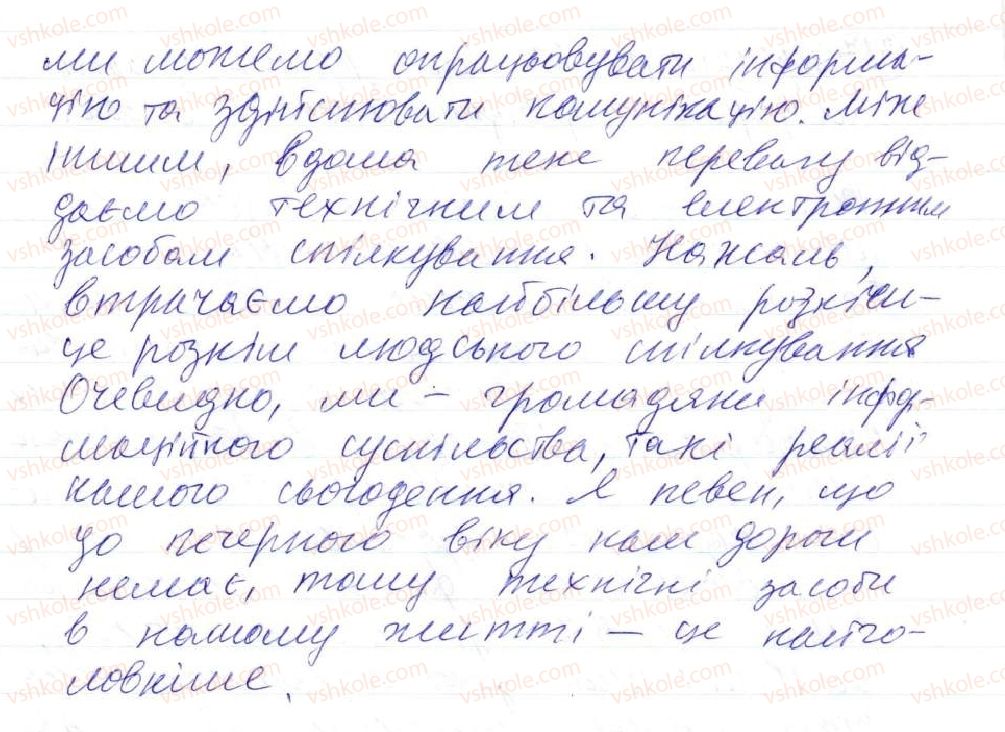 ми можемо опрацьовувати інформа-
цію та здійснювати комунікацію. Між
іншим, вдома теж перевагу від-
даємо технічним та електронним
засобам спілкування. Нажаль,
втрачаємо найбільшу розкіш -
це розкіш людського спілкування
Очевидно, ми – громадяни інфор-
маційного суспільства, такі реалії
нашого сьогодення. Я певен, що
до печерного віку нам дороги
немає, тому технічні засоби
в нашому житті – це найго-
ловніше.